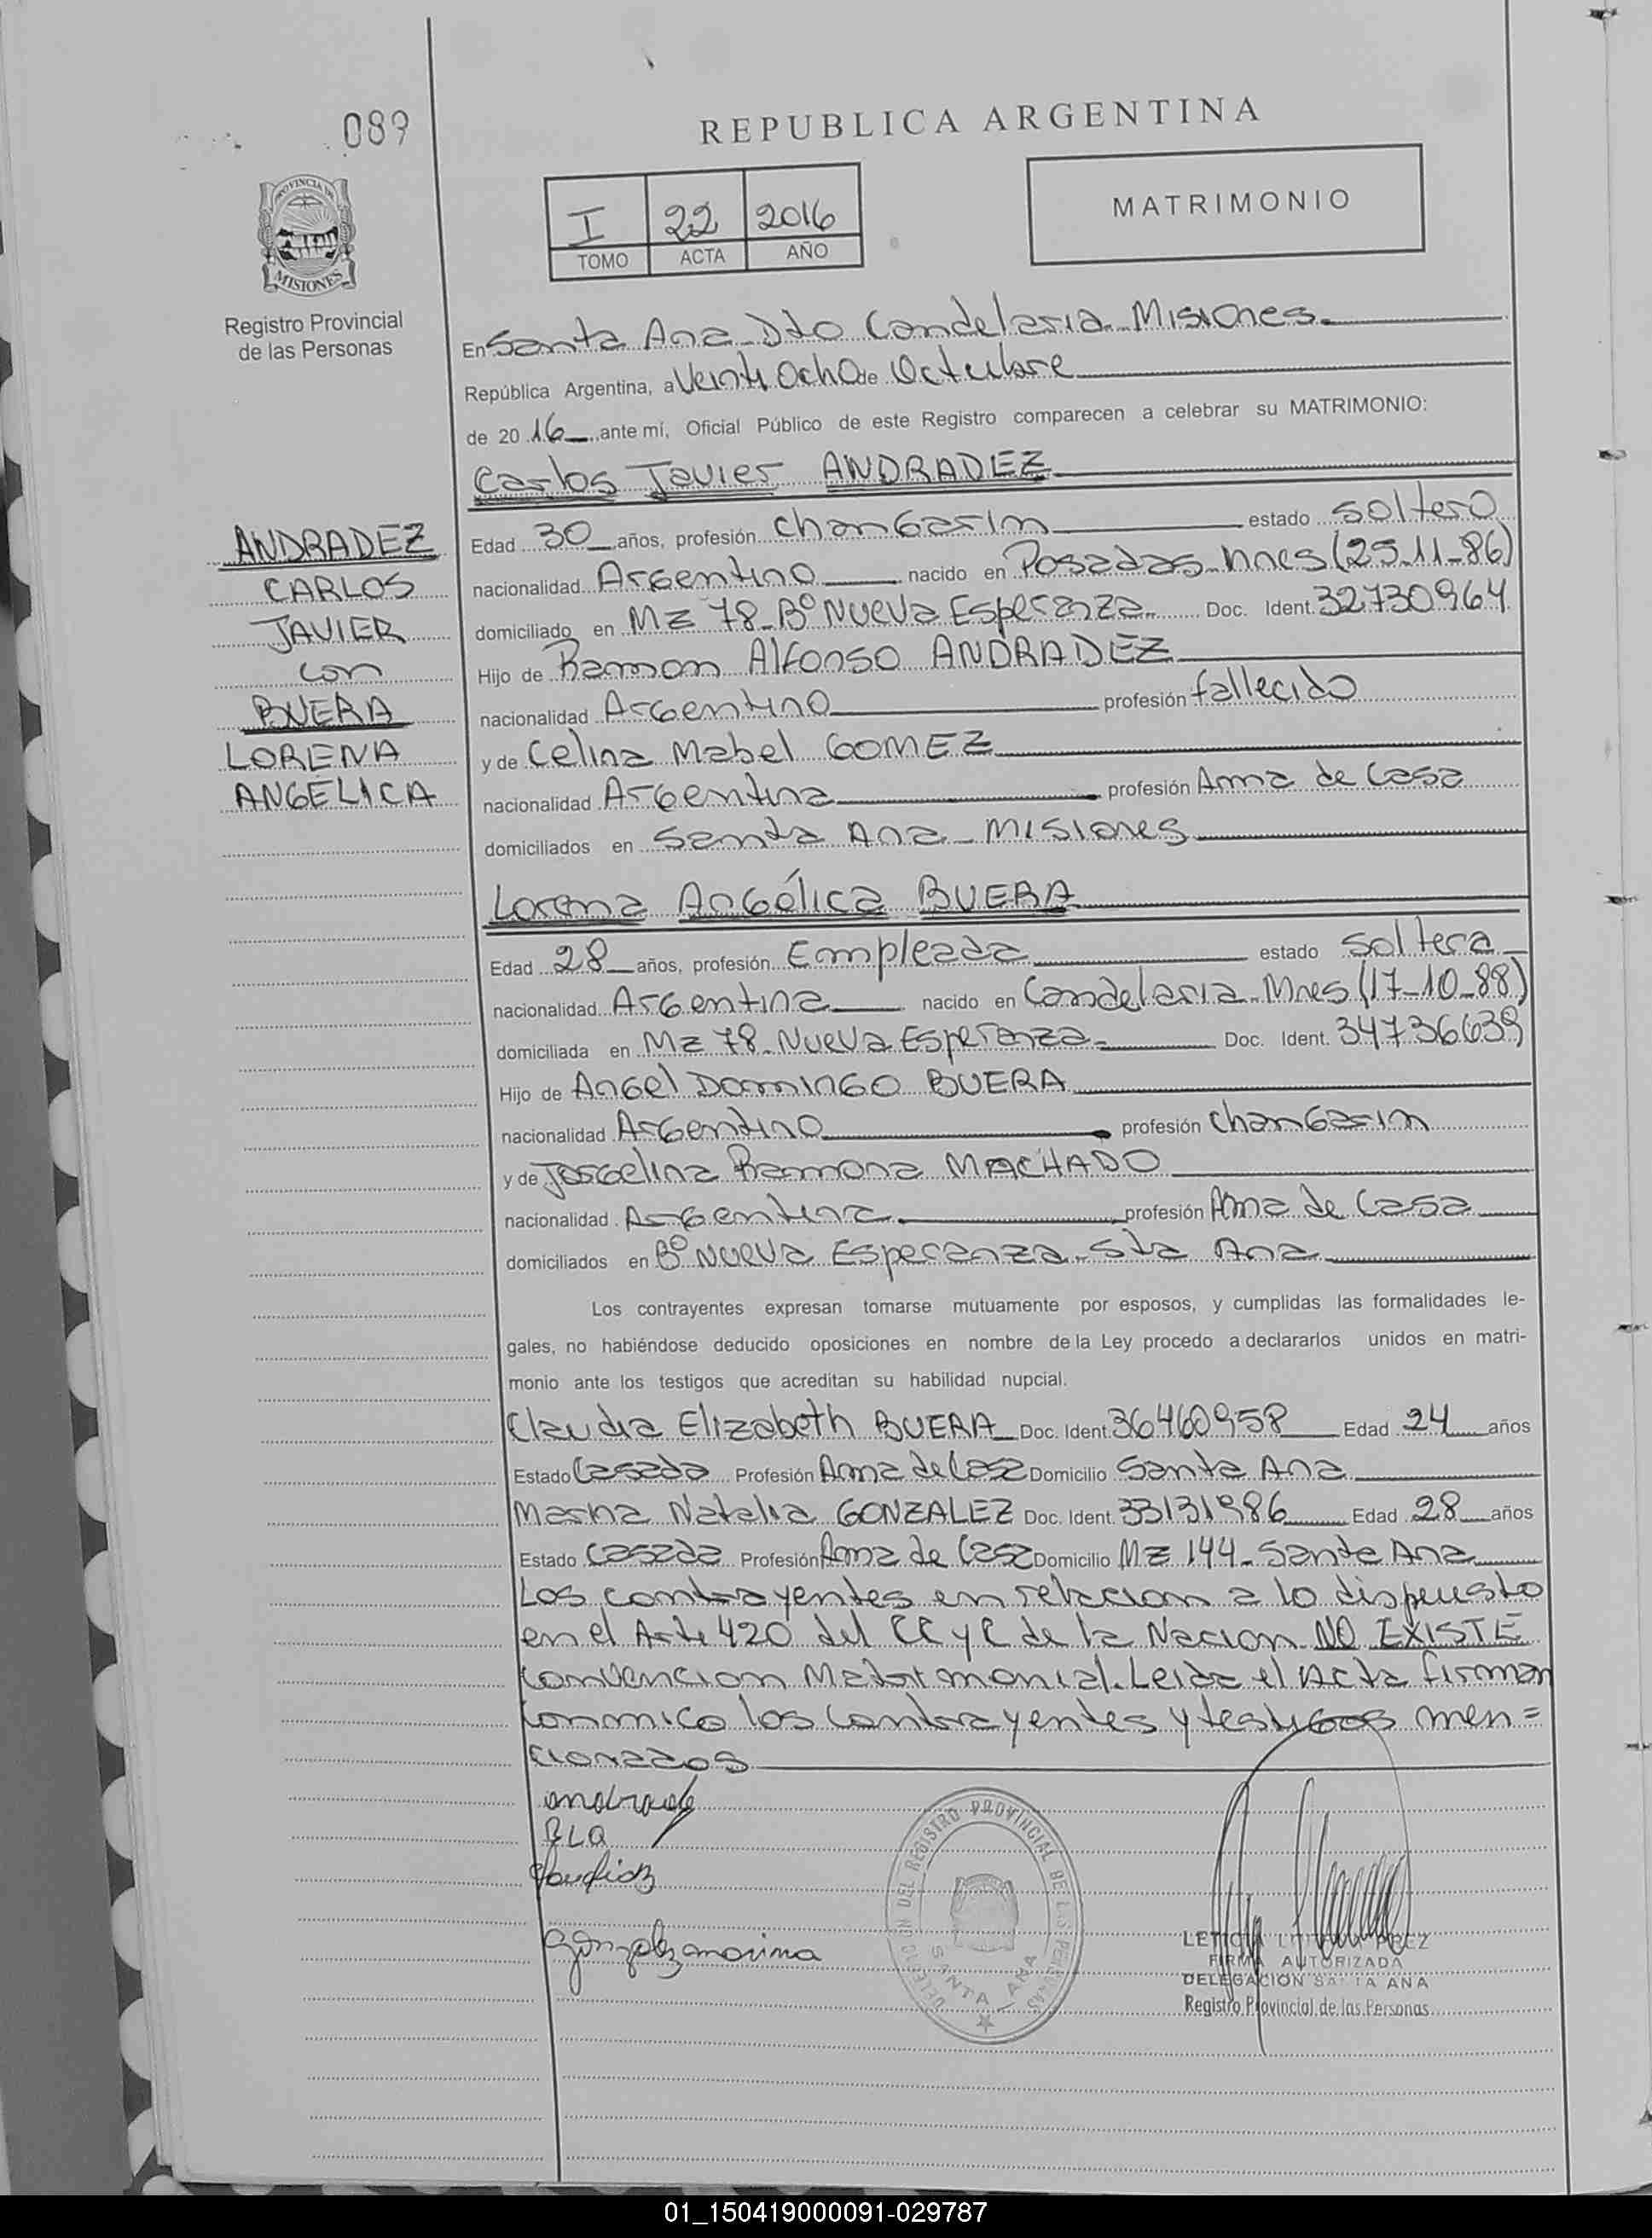 089
REPUBLICA ARGENTINA
PROVINCIA DE
MISIONES
Registro Provincial
de las Personas
I 22 2016
TOMO ACTA AÑO
MATRIMONIO
En Santa Ana Dto Candelaria Misiones
República Argentina, a Veinti Ocho de Octubre
de 20 16 ante mí, Oficial Público de este Registro comparecen a celebrar su MATRIMONIO:
Carlos Javier ANDRADEZ
ANDRADEZ
CARLOS
JAVIER
con
BUERA
LORENA
ANGELICA
Edad 30 años, profesión ChanGarin estado Soltero
nacionalidad Argentino nacido en Posadas Mnes (25-11-86)
domiciliado en Mz 78 Bº Nueva Esperanza Doc. Ident. 32730964
Hijo de Ramon Alfonso ANDRADEZ
nacionalidad Argentino profesión fallecido
y de Celina Mabel GOMEZ
nacionalidad Argentina profesión Ama de Casa
domiciliados en Santa Ana - Misiones
Lorena Angélica BUERA
Edad 28 años, profesión Empleada estado Soltera
nacionalidad Argentina nacido en Candelaria Mnes (17-10-88)
domiciliada en Mz 78 Nueva Esperanza Doc. Ident. 34736639
Hijo de Angel Domingo BUERA
nacionalidad Argentino profesión ChanGarin
y de Ramona MACHADO
nacionalidad Argentina profesión Ama de Casa
domiciliados en Bº Nueva Esperanza Sta Ana
Los contrayentes expresan tomarse mutuamente por esposos, y cumplidas las formalidades le-
gales, no habiéndose deducido oposiciones en nombre de la Ley procedo a declararlos unidos en matri-
monio ante los testigos que acreditan su habilidad nupcial.
Claudia Elizabeth BUERA Doc. Ident. 36460958 Edad 24 años
Estado Casada Profesión Ama de Casa Domicilio Santa Ana
Marina Natalia GONZALEZ Doc. Ident. 33131986 Edad 28 años
Estado Casada Profesión Ama de Casa Domicilio Mz 144 - Santa Ana
Los contrayentes en relacion a lo dispuesto
en el Art 420 del CC y C de la Nacion NO EXISTE
Convencion Matrimonial. Leida el Acta firman
conmigo los contrayentes y testigos men=
cionados
Andrade
BLA
Claudia B
Gonzalez marina
DELEGACION DEL REGISTRO PROVINCIAL DE LAS PERSONAS
SANTA ANA
LETICIA
FIRMA AUTORIZADA
DELEGACION SANTA ANA
Registro Provincial de las Personas
01_150419000091-029787